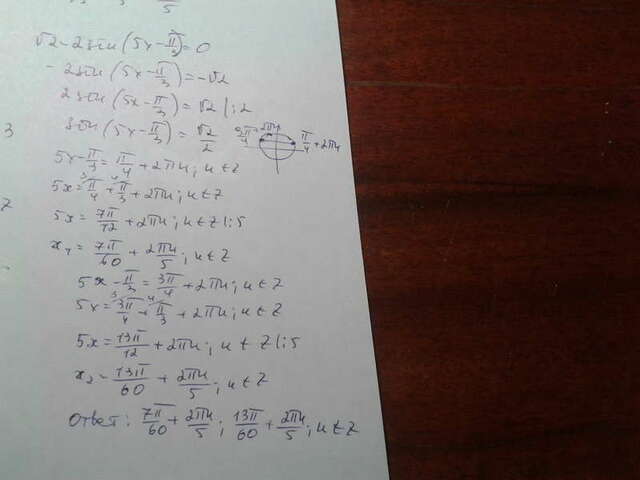 5
√2 - 2sin(5x - π/3) = 0
- 2sin(5x - π/3) = -√2
2sin(5x - π/3) = √2 |:2
3
sin(5x - π/3) = √2/2
3π/4 + 2πn
π/4 + 2πn
5x - π/3 = π/4 + 2πn; n ∈ Z
5x = π/4 + π/3 + 2πn; n ∈ Z
5x = 7π/12 + 2πn; n ∈ Z |:5
x₁ = 7π/60 + 2πn/5; n ∈ Z
5x - π/3 = 3π/4 + 2πn; n ∈ Z
5x = 3π/4 + π/3 + 2πn; n ∈ Z
5x = 13π/12 + 2πn; n ∈ Z |:5
x₂ = 13π/60 + 2πn/5; n ∈ Z
Ответ: 7π/60 + 2πn/5; 13π/60 + 2πn/5; n ∈ Z